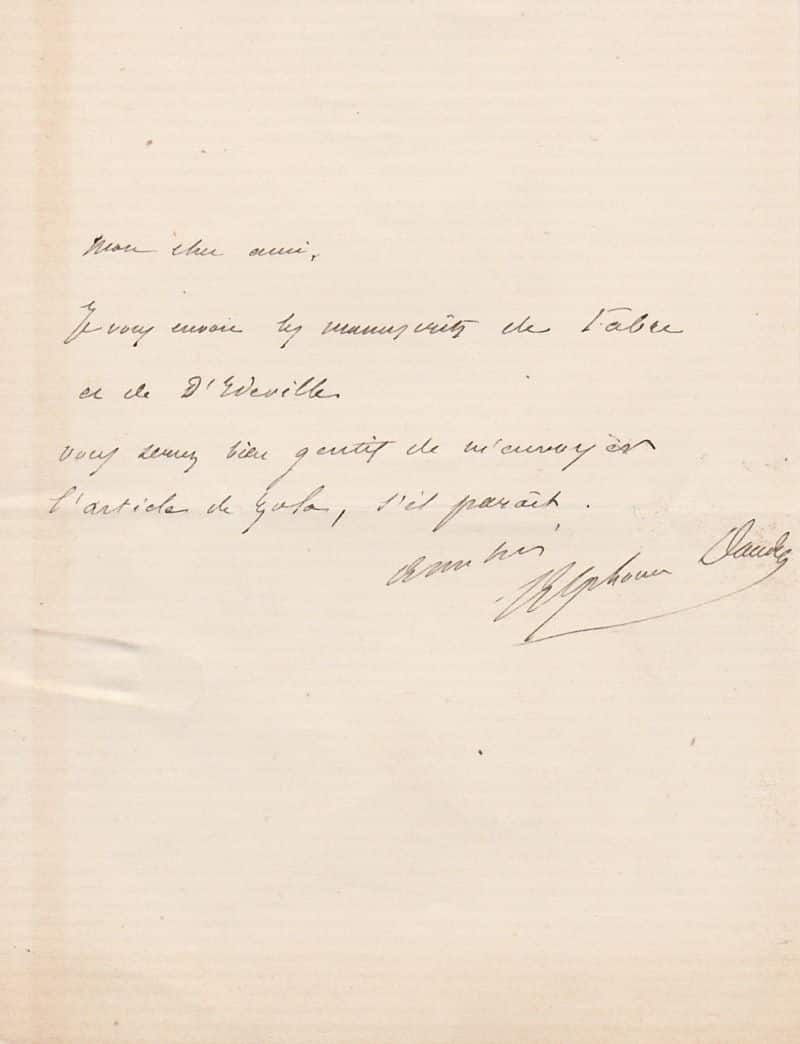 Mon cher ami,
Je vous envoie les manuscrits de Fabre
et de D'Ideville
vous serez bien gentil de m'envoyer
l'article de Zola, s'il paraît.
Alphonse Daudet